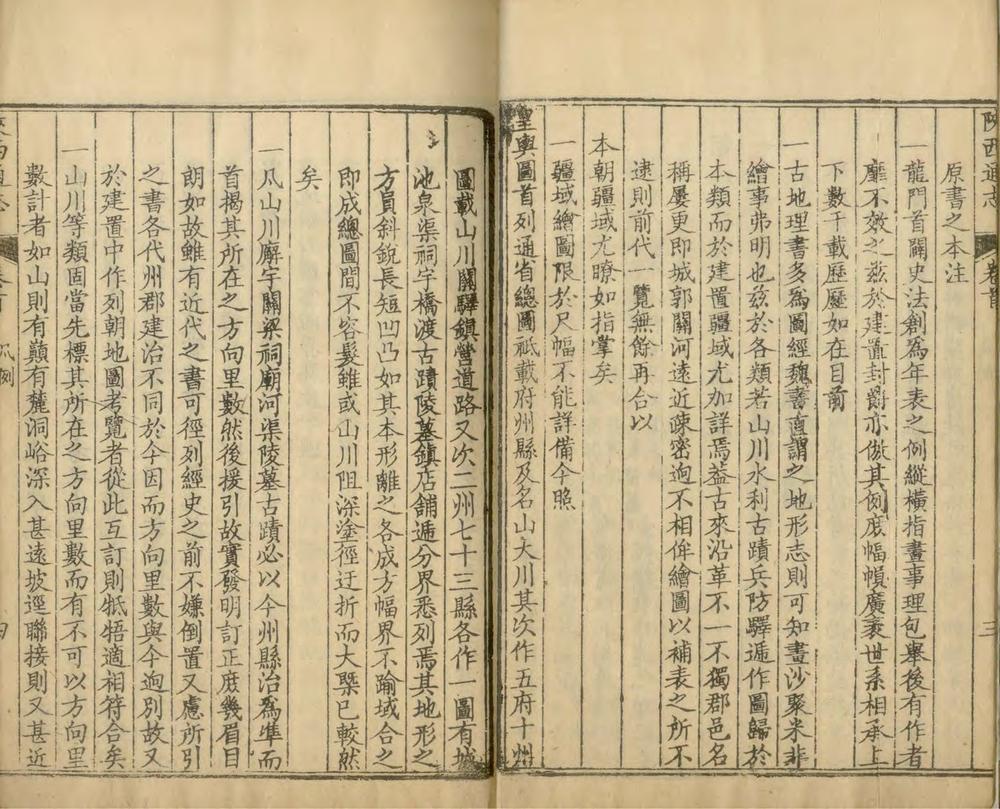 陝西通志
卷首
三
原書之本注
一龍門首闢史法創為年表之例縱橫指畫事理包舉後有作者
靡不效之茲於建置封爵亦倣其例庶幅幀廣袤世系相承上
下數千載歷歷如在目前
一古地理書多為圖經魏書直謂之地形志則可知畫沙聚米非
繪事弗明也茲於各類若山川水利古蹟兵防驛遞作圖歸於
本類而於建置疆域尤加詳焉葢古來沿革不一不獨郡邑名
稱屢更即城郭關河遠近疎密逈不相侔繪圖以補表之所不
逮則前代一覽無餘再合以
本朝疆域尤瞭如指掌矣
一疆域繪圖限於尺幅不能詳備今照
皇輿圖首列通省總圖祗載府州縣及名山大川其次作五府十州
圖載山川關驛鎮營道路又次二州七十三縣各作一圖有城
池泉渠祠宇橋渡古蹟陵墓鎮店舖遞分界悉列焉其地形之
方員斜銳長短凹凸如其本形離之各成方幅界不踰域合之
即成總圖間不容髮雖或山川阻深塗徑迂折而大槩已較然
矣
一凡山川廨宇關梁祠廟河渠陵墓古蹟必以今州縣治為準而
首揭其所在之方向里數然後援引故實發明訂正庶幾眉目
朗如故雖有近代之書可徑列經史之前不嫌倒置又慮所引
之書各代州郡建治不同於今因而方向里數與今逈別故又
於建置中作列朝地圖考覽者從此互訂則牴牾適相符合矣
一山川等類固當先標其所在之方向里數而有不可以方向里
數計者如山則有巔有麓洞峪深入甚遠坡逕聯接則又甚近